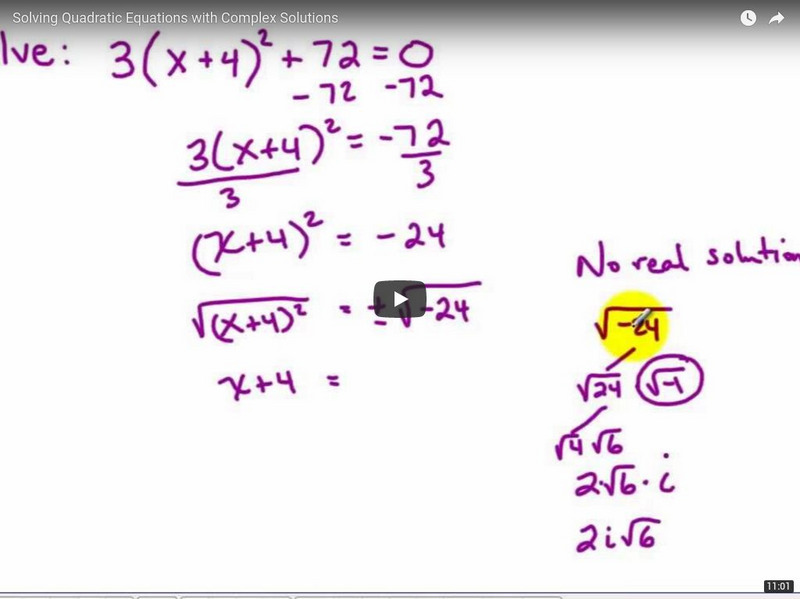 Solving Quadratic Equations with Complex Solutions
lve: 3(x+4)² + 72 = 0
- 72 -72
3(x+4)² = -72
3 3
(x+4)² = - 24
√(x+4)² = ±√-24
x+4 =
No real solution
√-24
√24 √-1
√4 √6
2·√6 · i
2i√6
11:01